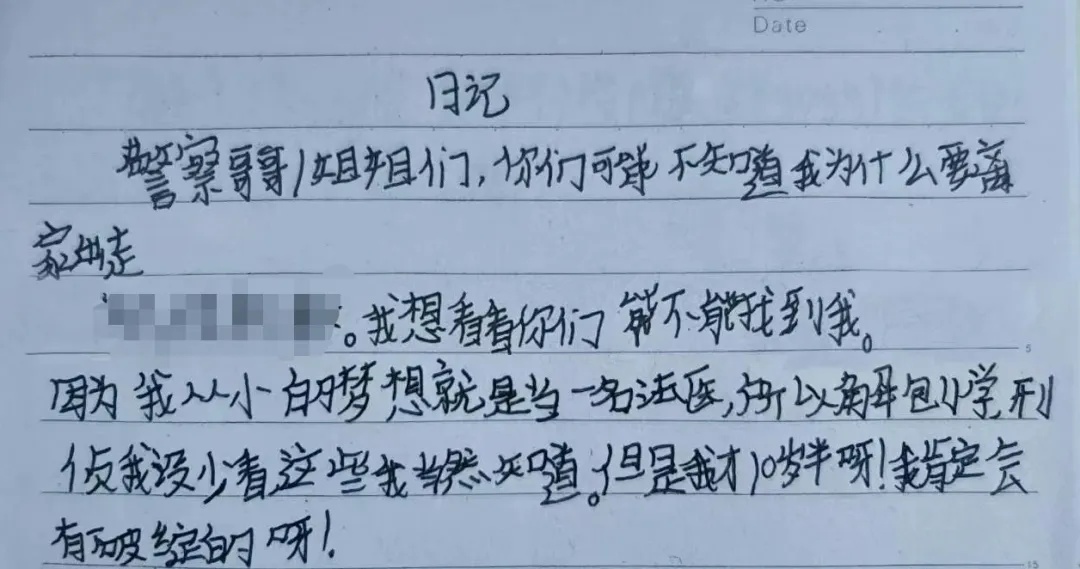 Date
日记
警察哥哥/姐姐们，你们可能不知道我为什么要离
家出走
。我想看看你们能不能找到我。
因为我从小的梦想就是当一名法医，所以解剖学刑
侦我没少看这些我当然知道。但是我才10岁半呀！我肯定会
有破绽的呀！
5
15